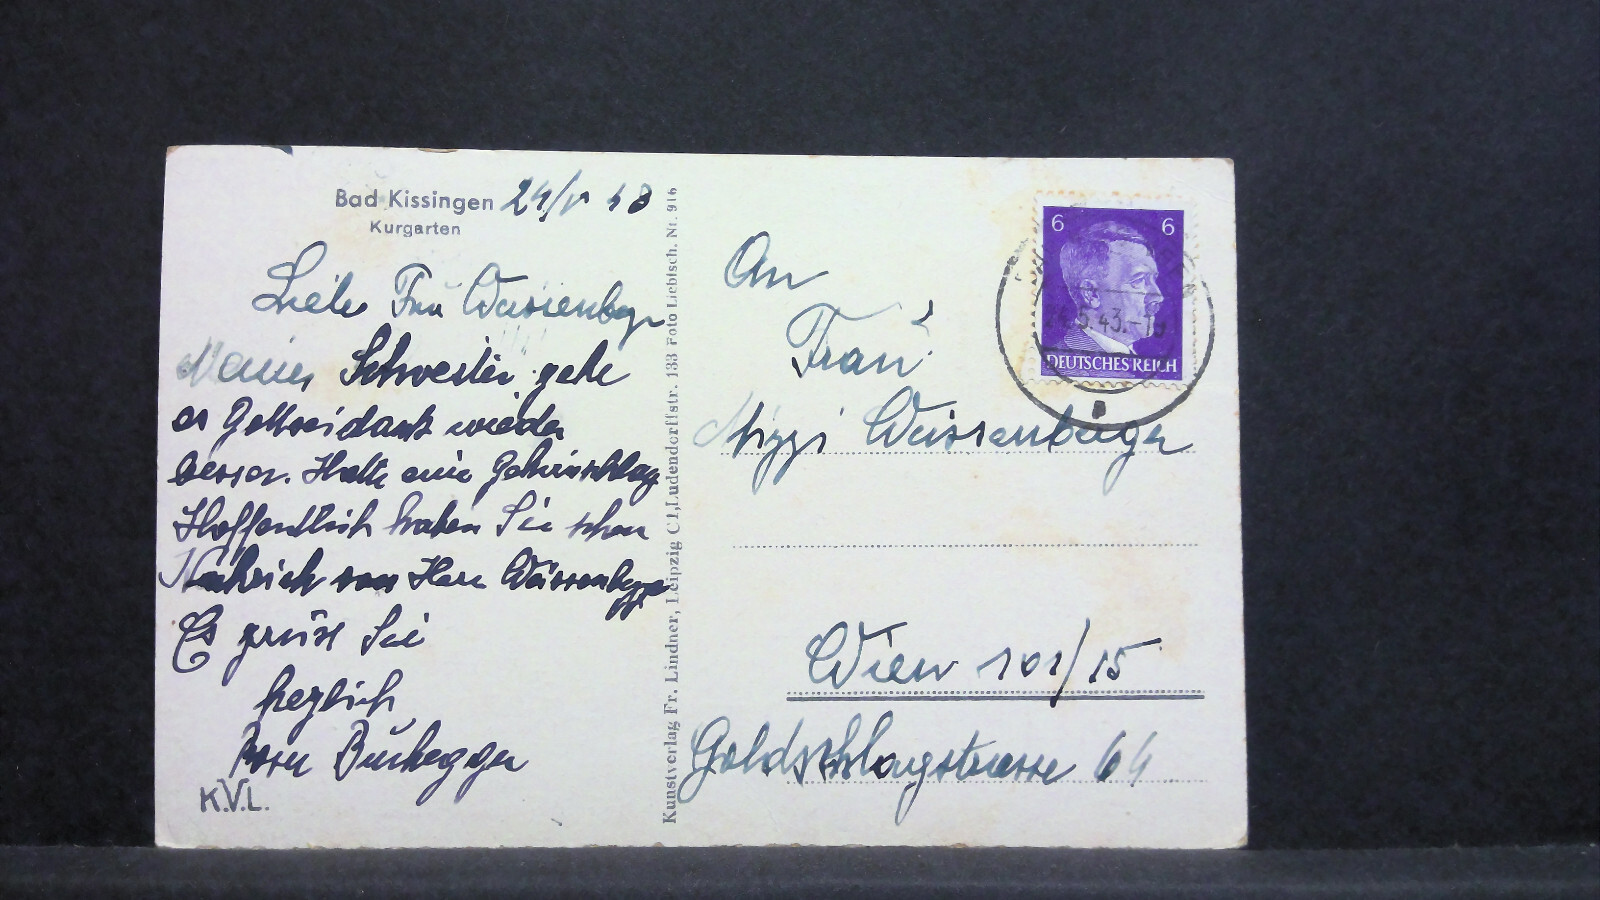 Bad Kissingen 24/V 43
Kurgarten
Liebe Frau Weissenberger
Meiner Schwester gehe
es Gottseidank wieder
besser. Hatte eine Gehirnschlag
Hoffentlich haben Sie schon
Nachrich von Herr Weissenberger
Es grüst Sie
herzlich
Buchegger
K.V.L.
Kunstverlag Fr. Lindner, Leipzig C1, Ludendorffstr. 133 Foto Liebisch. Nr. 916
6 6
DEUTSCHES REICH
5.43.
An
Frau
Mizzi Weissenberger
Wien 101/15
Goldschlagstrasse 64